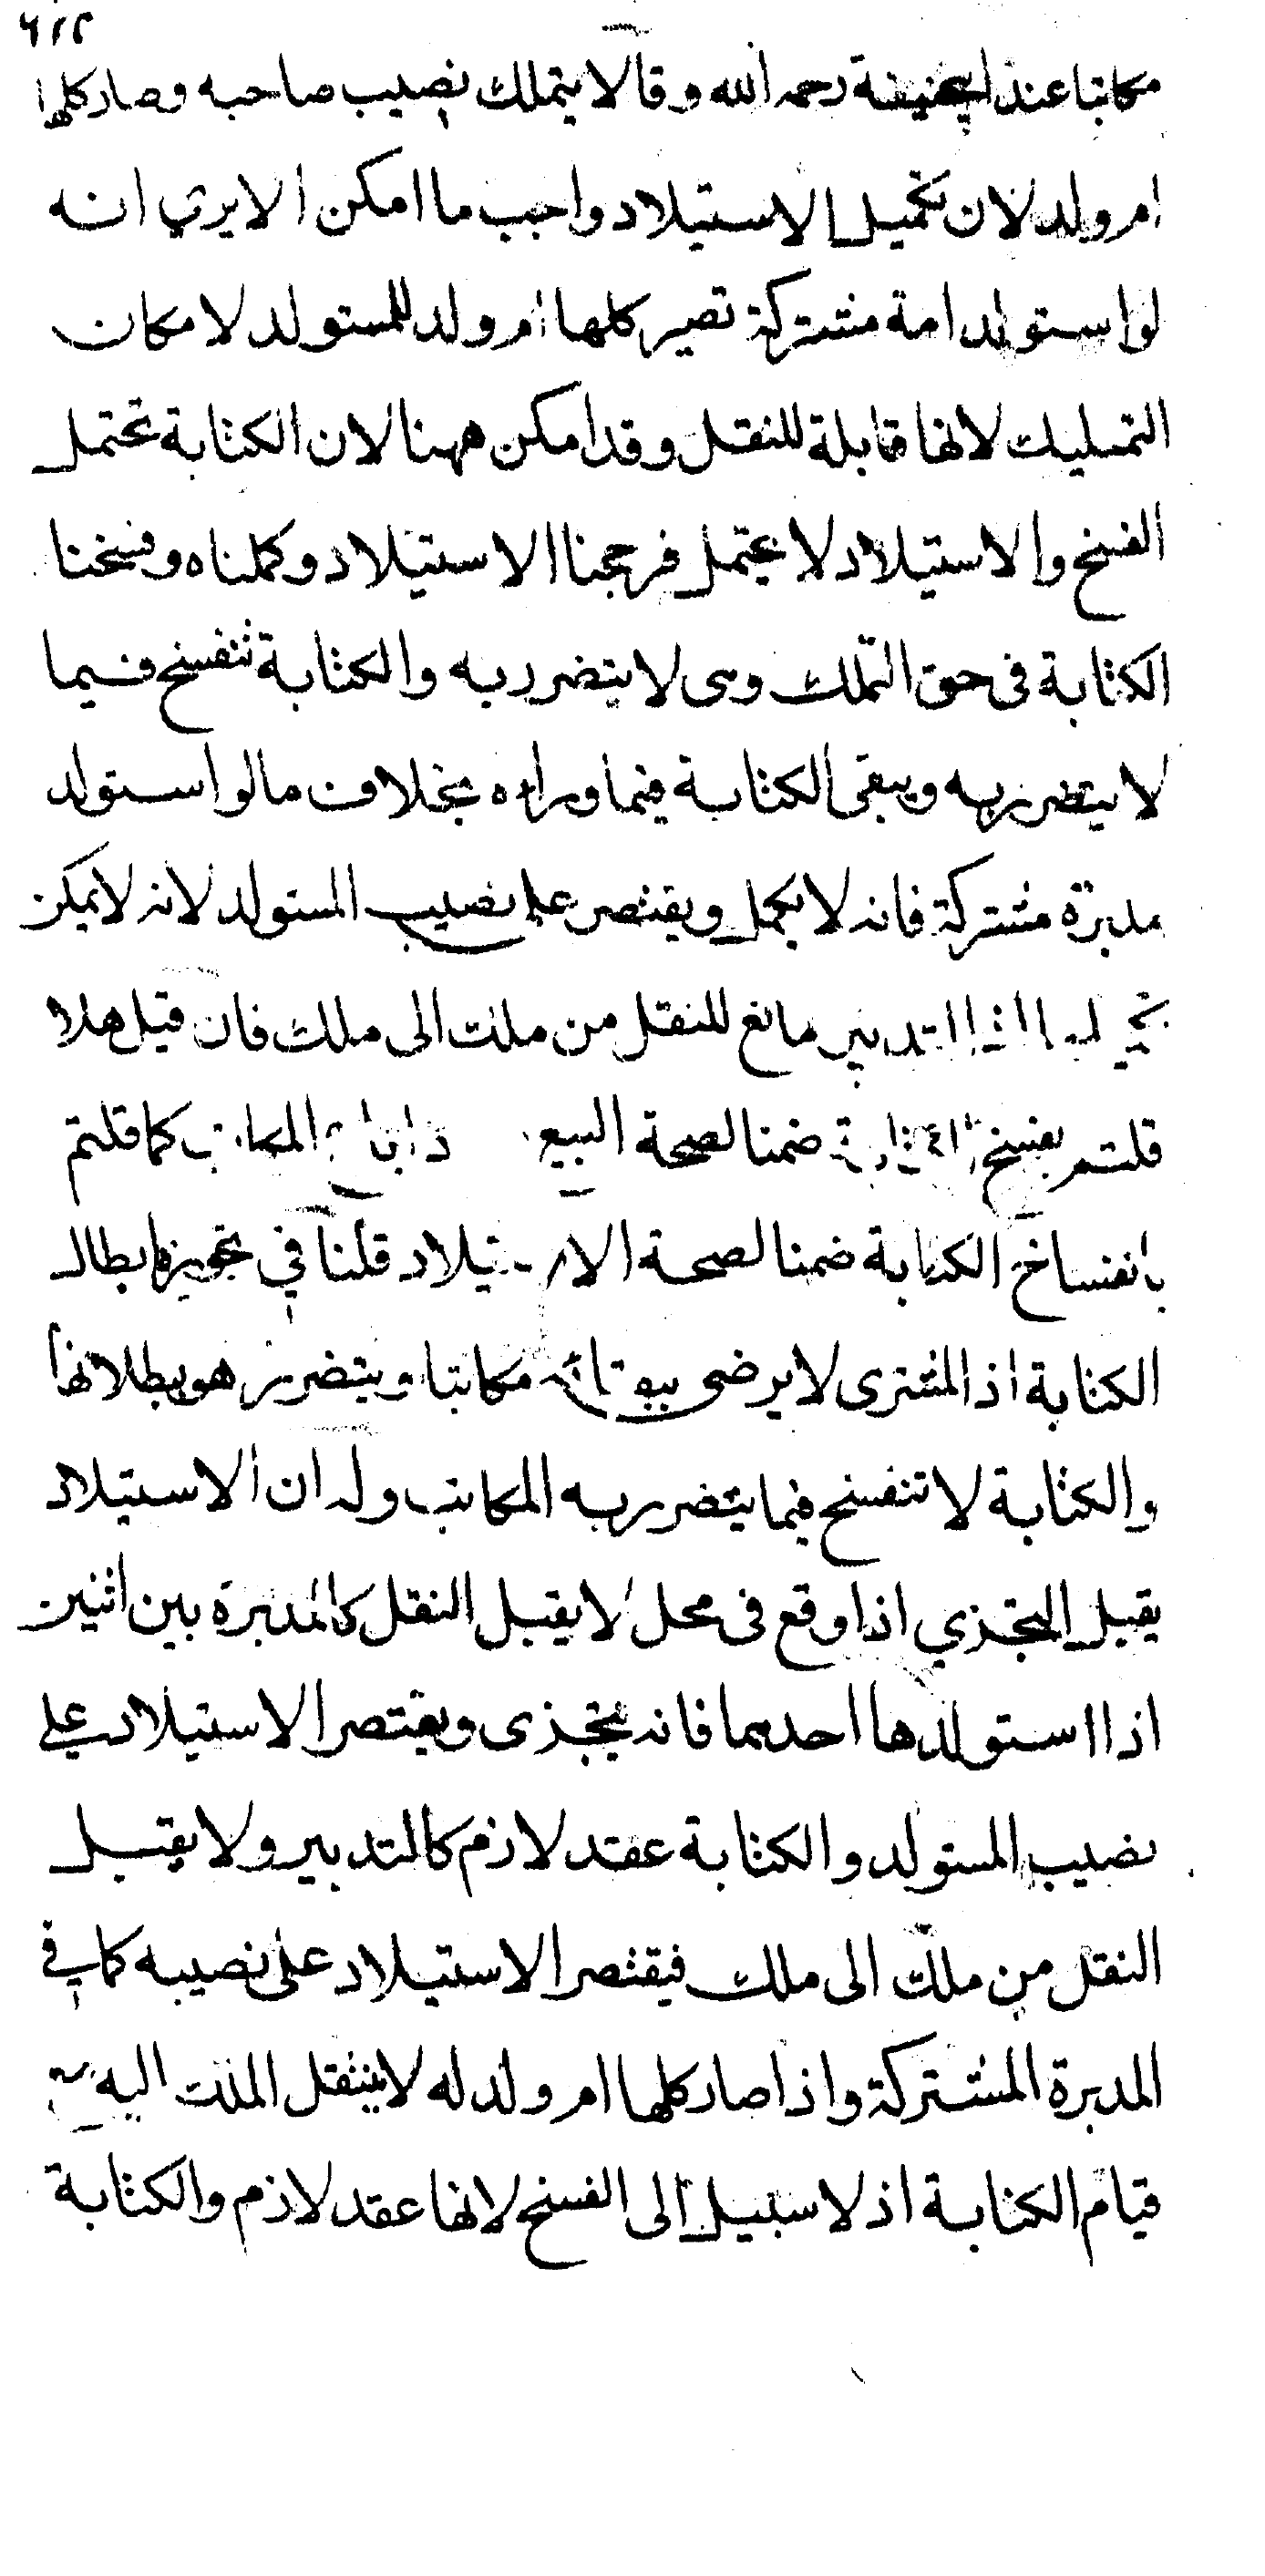 ٦١٢
مكاتبا عند ابيحنيفة رحمه الله وقالا يتملك نصيب صاحبه وصار كلها
ام ولد لان تكميل الاستيلاد واجب ما امكن الا يري انه
لو استولد امة مشتركة تصير كلها ام ولد للمستولد لامكان
التمليك لانها قابلة للنقل وقد امكن ههنا لان الكتابة تحتمل
الفسخ والاستيلاد لا يحتمل فرجحنا الاستيلاد وكملناه وفسخنا
الكتابة في حق التملك وهى لا يتضرر به والكتابة تنفسخ فيما
لا يتضرر به ويبقى الكتابة فيما وراءه بخلاف ما لو استولد
مدبرة مشتركة فانه لا يكمل ويقتصر على نصيب المستولد لانه لا يمكن
التدبير مانع للنقل من ملك الى ملك فان قيل هلا
قلتم بفسخ ضمنا لصحة البيع المكاتب كما قلتم
بانفساخ الكتابة ضمنا لصحة الاستيلاد قلنا في تجويزه ابطال
الكتابة اذ المشترى لا يرضى ببقائه مكاتبا ويتضرر هو ببطلانها
والكتابة لا تنفسخ فيما يتضرر به المكاتب وله ان الاستيلاد
يقبل التجزي اذا وقع فى محل لا يقبل النقل كالمدبرة بين اثنين
اذا استولدها احدهما فانه يتجزى ويقتصر الاستيلاد على
نصيب المستولد والكتابة عقد لازم كالتدبير ولا يقبل
النقل من ملك الى ملك فيقتصر الاستيلاد على نصيبه كما في
المدبرة المشتركة واذا صار كلها ام ولد له لا ينتقل الملك اليه
قيام الكتابة اذ لا سبيل الى الفسخ لانها عقد لازم والكتابة